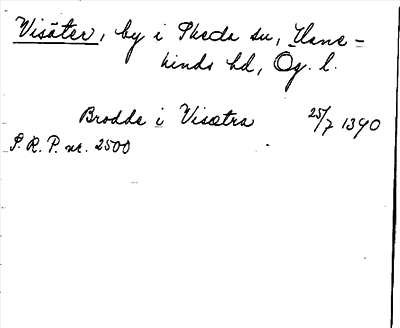 Visäter, by i Skeda sn, Hane-
kinds hd, Ög. l.
Brodde i Visætra 25/7 1390
S. R. P. nr. 2500